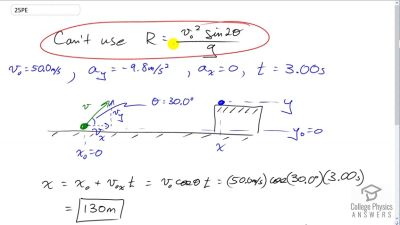 25PE
Can't use R = v₀² sin2θ / g
v₀ = 50.0 m/s , a_y = -9.8 m/s² , a_x = 0 , t = 3.00s
v
v_y
v_x
θ = 30.0°
y
y₀ = 0
x₀ = 0
x
x = x₀ + v₀ₓ t = v₀ cosθ t = (50.0 m/s) cos(30.0°)(3.00s)
= 130m
College Physics
ANSWERS